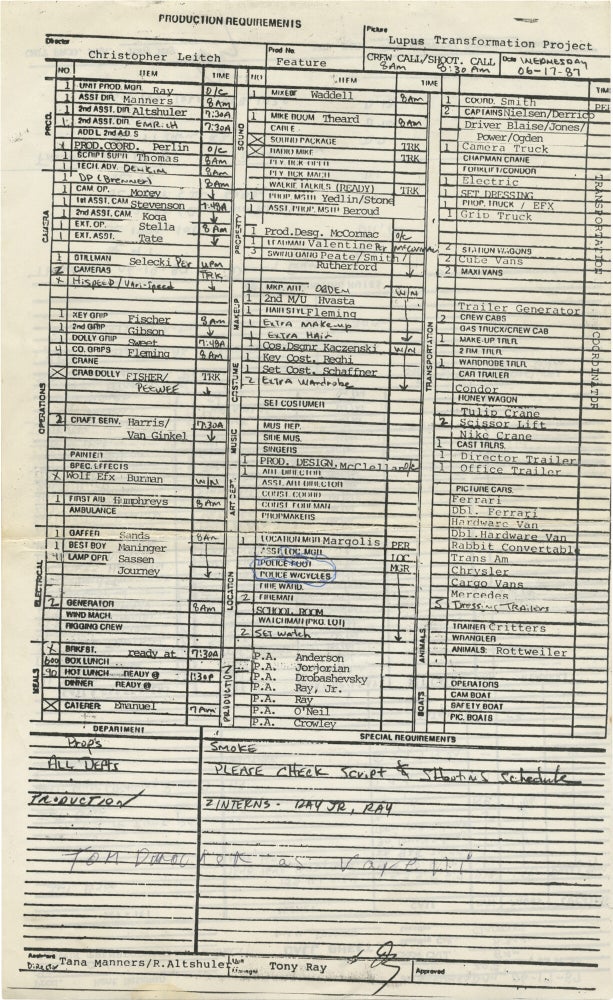 PRODUCTION REQUIREMENTS
Director
Christopher Leitch
Prod No.
Feature
Picture
Lupus Transformation Project
CREW CALL/SHOOT. CALL
8AM 8:30 AM
Date WEDNESDAY
06-17-87
NO ITEM TIME
PROD.
1 UNIT PROD. MGR. Ray O/C
1 ASST DIR. Manners 8AM
1 2nd ASST. DIR. Altshuler 7:30A
1 2nd ASST. DIR. EMRICH 7:30A
ADD'L 2nd A.D.'S
X PROD. COORD. Perlin O/C
1 SCRIPT SUPR. Thomas 8AM
1 TECH. ADV. 8AM
CAMERA
1 DP (BRENNER) 8AM
1 CAM. OP. Morey
1 1st ASST. CAM. Stevenson 7:48A
1 2nd ASST. CAM. Koga
1 EXT. OP. Stella 8AM
1 EXT. ASST. Tate
1 STILLMAN Selecki PER UPM
2 CAMERAS TRK
X HISPEED/VARI-SPEED
OPERATIONS
1 KEY GRIP Fischer 8AM
1 2nd GRIP Gibson
1 DOLLY GRIP Sweet 7:48A
4 CO. GRIPS Fleming 8AM
CRANE
X CRAB DOLLY FISHER/ PEEWEE TRK
2 CRAFT SERV. Harris/ 7:30A
Van Ginkel
PAINTER
SPEC. EFFECTS
X Wolf Efx Burman W/N
1 FIRST AID Humphreys 8AM
AMBULANCE
ELECTRICAL
1 GAFFER Sands 8AM
1 BEST BOY Maninger
4 LAMP OPR. Sassen
Journey
2 GENERATOR 8AM
WIND MACH.
RIGGING CREW
MEALS
X BRKFST. ready at 7:30A
BOX LUNCH
90 HOT LUNCH READY @ 1:30P
DINNER READY @
X CATERER Emanuel 7AM
NO ITEM TIME
SOUND
1 MIXER Waddell 8AM
1 MIKE BOOM Theard 8AM
CABLE
X SOUND PACKAGE
X RADIO MIKE TRK
PLY BCK OPER.
PLY BCK MACH.
WALKIE TALKIES (READY) TRK
PROPERTY
1 PROP. MSTR Yedlin/Stone
1 ASST. PROP. MSTR Beroud
1 Prod.Desg. McCormac O/C
1 LEADMAN Valentine PER McCORMAC
3 SWING GANG Peate/Smith/
Rutherford
MAKEUP
1 MKP. ART. OGDEN W/N
1 2nd M/U Hvasta
1 HAIRSTYLE Fleming
1 EXTRA MAKE-UP
1 EXTRA HAIR
COSTUME
1 Cos.Dsgnr Kaczenski W/N
1 Key Cost. Rechi
1 Set Cost. Schaffner
2 EXTRA WARDROBE
SET COSTUMER
MUSIC
MUS REP.
SIDE MUS.
SINGERS
ART DEPT.
1 PROD. DESIGN. McClellan O/C
1 ART DIRECTOR
ASST. ART DIRECTOR
CONST. COORD
CONST. FOREMAN
PROPMAKERS
LOCATION
1 LOCATION MGR Margolis PER
ASST. LOC. MGR. LOC
POLICE FOOT MGR
POLICE W/CYCLES
FIRE WARD.
2 FIREMAN
SCHOOL ROOM
WATCHMAN (PKG. LOT)
2 SET WATCH
PRODUCTION
P.A. Anderson
P.A. Jorjorian
P.A. Drobashevsky
P.A. Ray, Jr.
P.A. Ray
P.A. O'Neil
P.A. Crowley
TIME
TRANSPORTATION
1 COORD. Smith PER
2 CAPTAINS Nielsen/Derrico
Driver Blaise/Jones/
Power/Ogden
1 Camera Truck
CHAPMAN CRANE
FORKLIFT/CONDOR
1 Electric
1 SET DRESSING
1 PROP. TRUCK / EFX
1 Grip Truck
2 STATION WAGONS
2 Cube Vans
2 MAXI VANS
Trailer Generator
2 CREW CABS
GAS TRUCK/CREW CAB
1 MAKE-UP TRLR.
2 RM TRLR.
1 WARDROBE TRLR.
CAR TRAILER
Condor
HONEY WAGON
Tulip Crane
2 Scissor Lift
Nike Crane
1 CAST TRLRS.
1 Director Trailer
1 Office Trailer
PICTURE CARS.
Ferrari
Dbl. Ferrari
Hardware Van
Dbl.Hardware Van
Rabbit Convertable
Trans Am
Chrysler
Cargo Vans
Mercedes
5 DRESSING TRAILERS
TRANSPORTATION COORDINATOR
ANIMALS
TRAINER Critters
WRANGLER
ANIMALS: Rottweiler
BOATS
OPERATORS
CAM BOAT
SAFETY BOAT
PIC. BOATS
DEPARTMENT SPECIAL REQUIREMENTS
PROP'S SMOKE
ALL DEPTS PLEASE CHECK SCRIPT & SHOOTING SCHEDULE
PRODUCTION 2 INTERNS - RAY JR, RAY
Assistant Director Tana Manners/R.Altshuler
Unit Manager Tony Ray
Approved